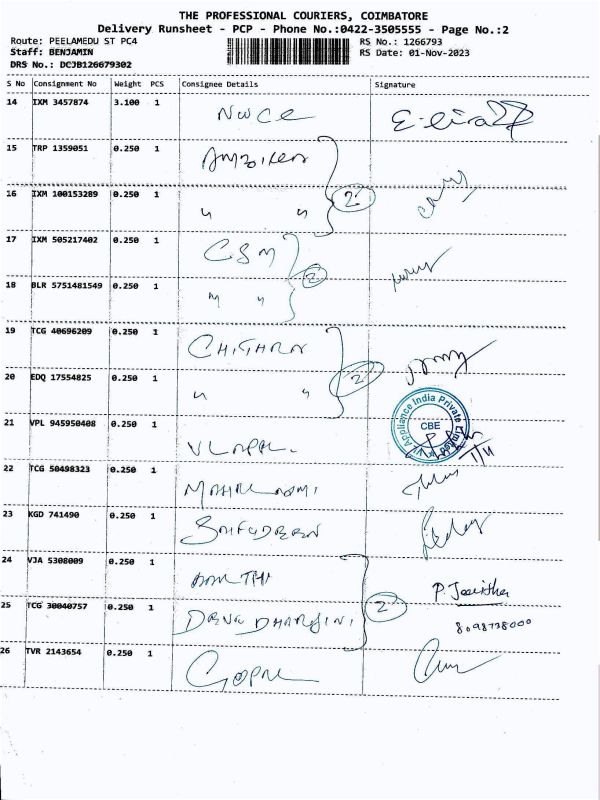 THE PROFESSIONAL COURIERS, COIMBATORE
Delivery Runsheet - PCP - Phone No.:0422-3505555 - Page No.:2
Route: PEELAMEDU ST PC4
Staff: BENJAMIN
DRS No.: DCJB126679302
RS No.: 1266793
RS Date: 01-Nov-2023
S No Consignment No Weight PCS Consignee Details Signature
14 IXM 3457874 3.100 1
15 TRP 1359051 0.250 1
16 IXM 100153289 0.250 1 " " 2
17 IXM 505217402 0.250 1 CSM
18 BLR 5751481549 0.250 1 " " 2
19 TCG 40696209 0.250 1 CHITHRA
20 EDQ 17554825 0.250 1 " " 2
21 VPL 945950408 0.250 1 Appliance India Private Limited CBE
22 TCG 50498323 0.250 1
23 KGD 741490 0.250 1
24 VJA 5308009 0.250 1
25 TCG 30040757 0.250 1 2 8098738000
26 TVR 2143654 0.250 1 GOPAL